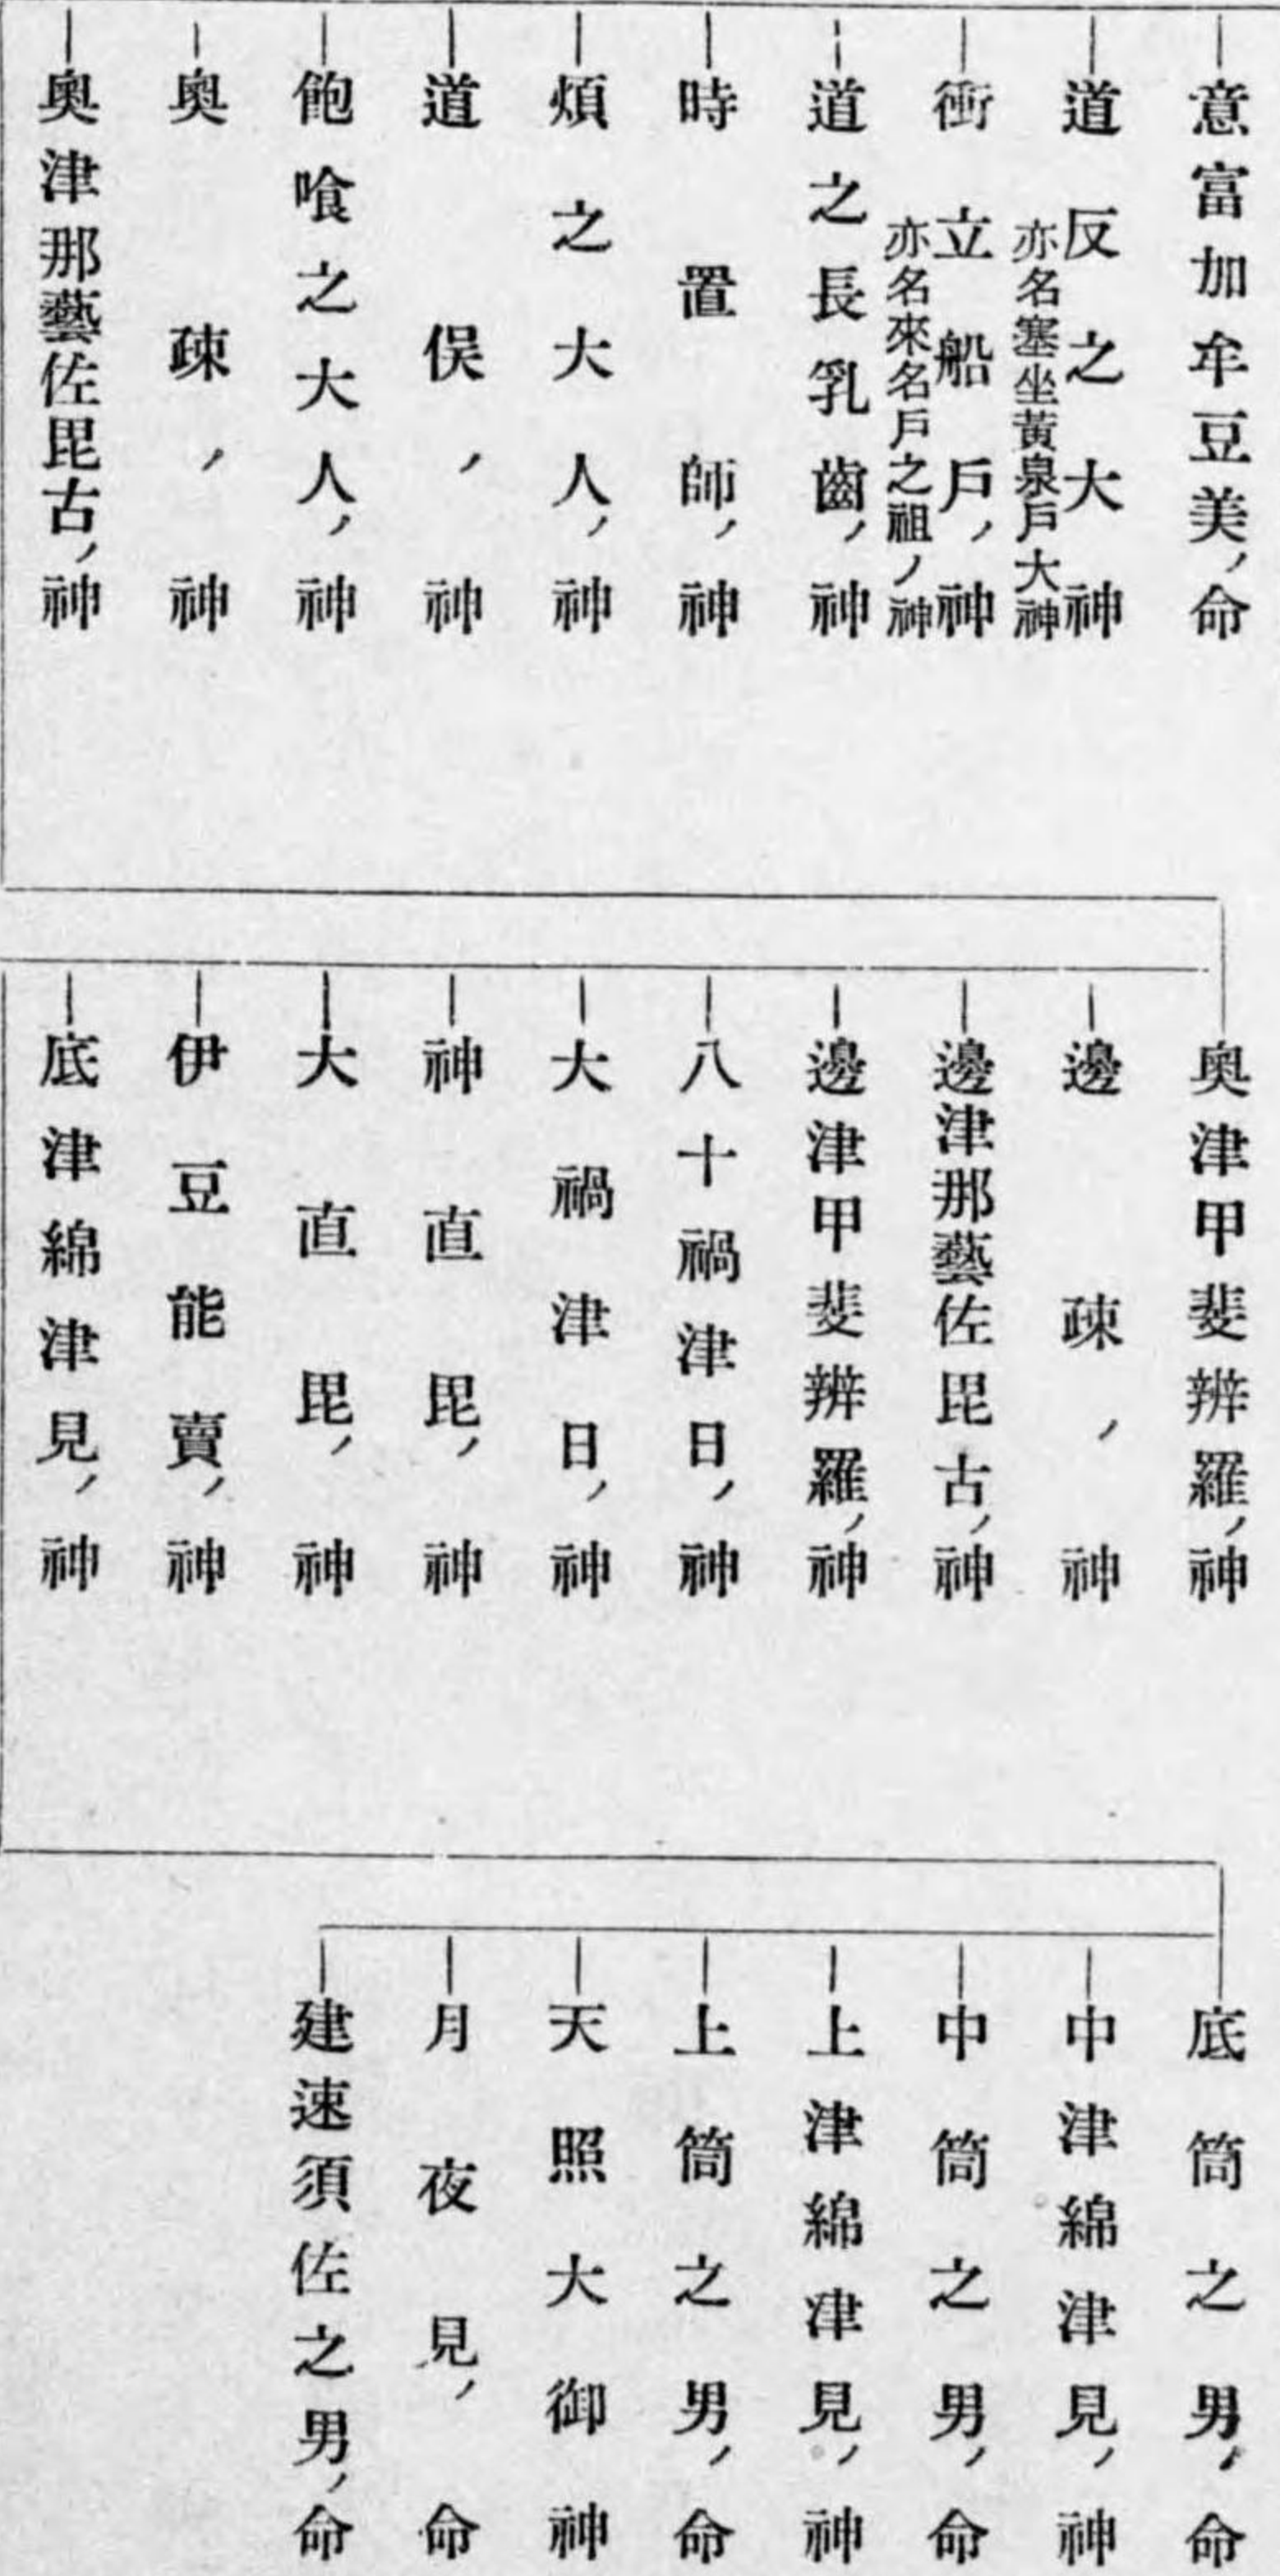 意富加牟豆美ノ命
道反之大神
亦名塞坐黄泉戶大神
衝立船戶ノ神
亦名來名戶之祖ノ神
道之長乳齒ノ神
時置師ノ神
煩之大人ノ神
道俣ノ神
飽喰之大人ノ神
奥疎ノ神
奥津那藝佐毘古ノ神
奥津甲斐辨羅ノ神
邊疎ノ神
邊津那藝佐毘古ノ神
邊津甲斐辨羅ノ神
八十禍津日ノ神
大禍津日ノ神
神直毘ノ神
大直毘ノ神
伊豆能賣ノ神
底津綿津見ノ神
底筒之男ノ命
中津綿津見ノ神
中筒之男ノ命
上津綿津見ノ神
上筒之男ノ命
天照大御神
月夜見ノ命
建速須佐之男ノ命